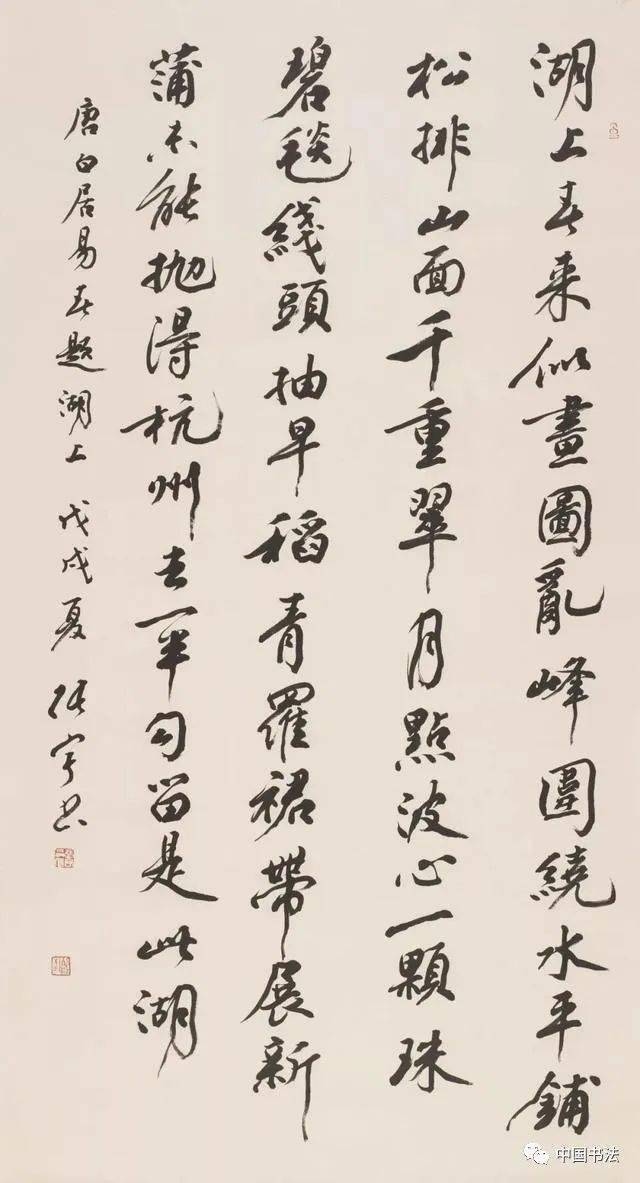 湖上春来似畫圖亂峰圍繞水平鋪
松排山面千重翠月點波心一顆珠
碧毯綫頭抽早稻青羅裙帶展新
蒲未能抛得杭州去一半勾留是此湖
唐白居易春題湖上 戊戌夏 張宇书
中国书法